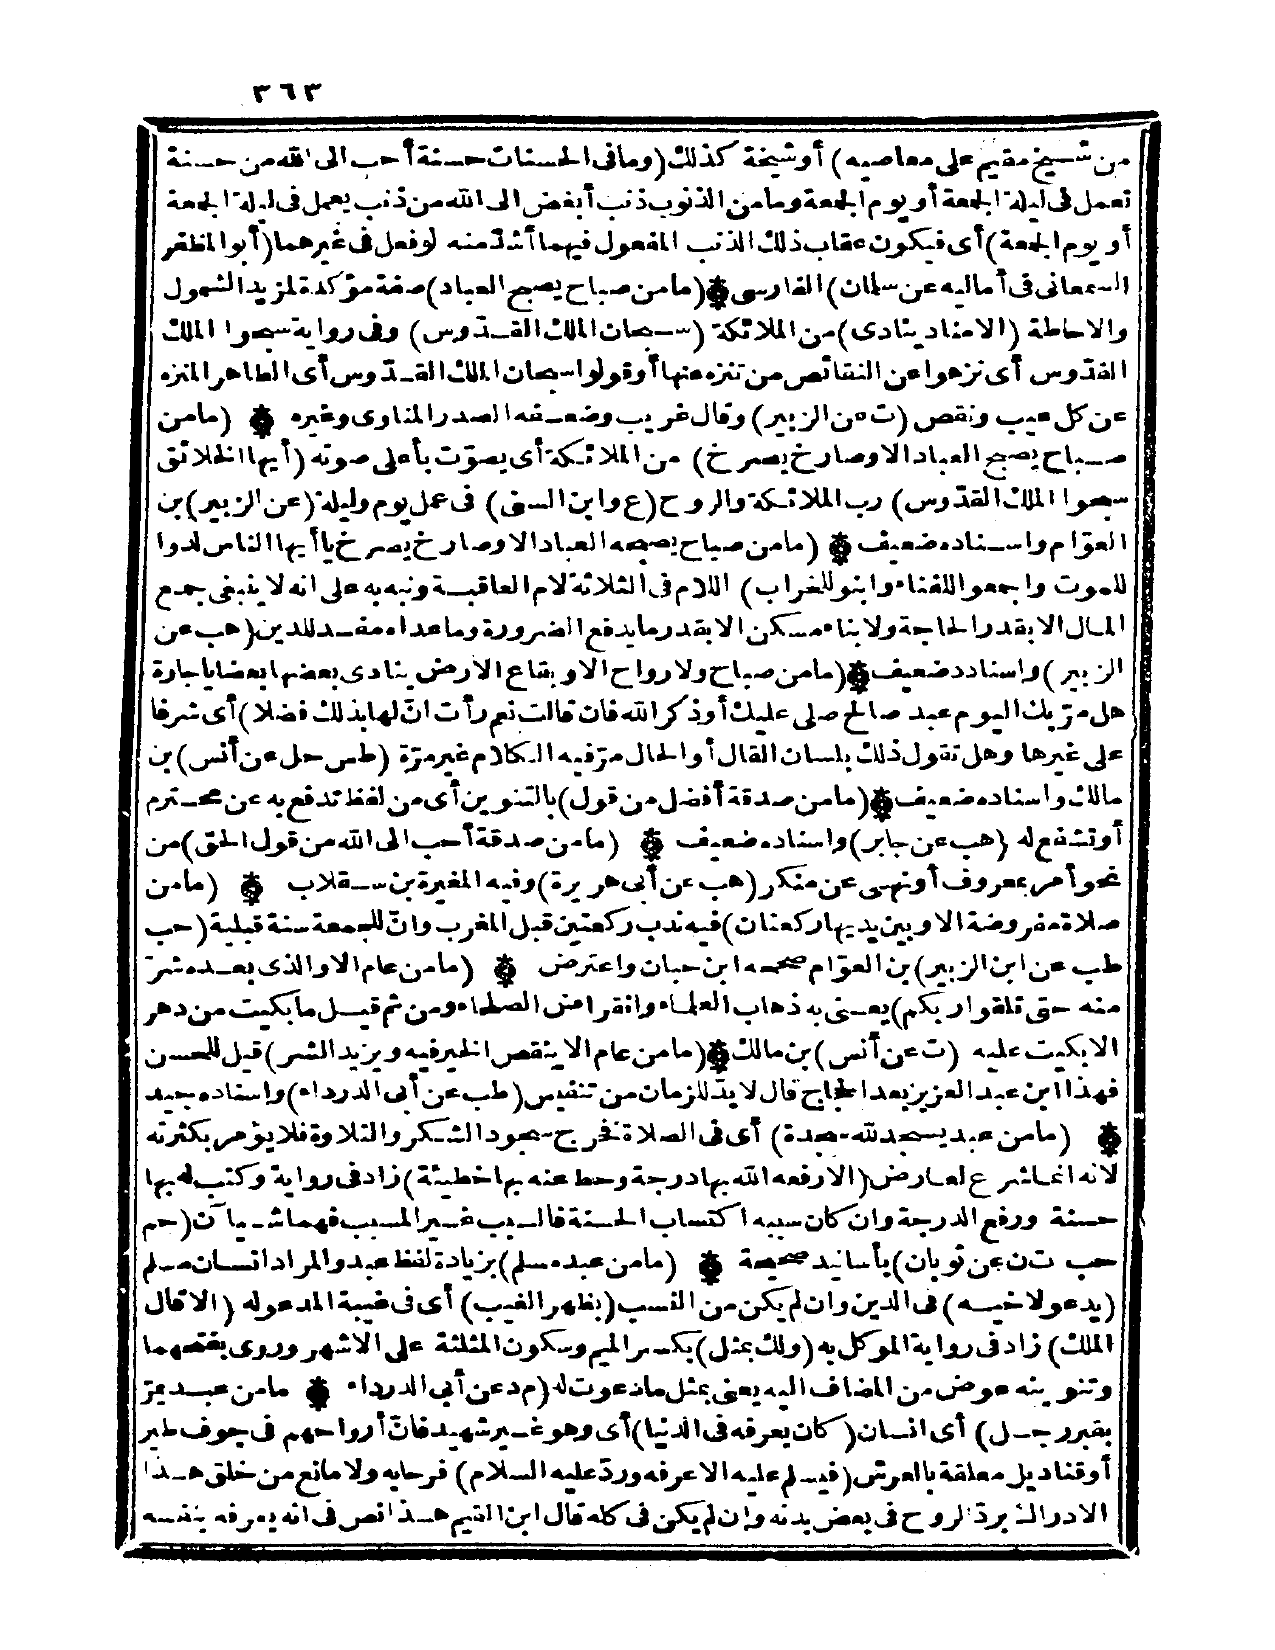 ٣٦٣
من شيخ مقيم على معاصيه) أو شيخة كذلك (وما فى الحسنات حسنة أحب الى الله من حسنة
تعمل فى ليلة الجمعة أو يوم الجمعة وما من الذنوب ذنب أبغض الى الله من ذنب يعمل فى ليلة الجمعة
أو يوم الجمعة) أى فيكون عقاب ذلك الذنب المفعول فيهما أشدّ منه لو فعل فى غيرهما (أبو المظفر
السمعانى فى أماليه عن سلمان) الفارسى (ما من صباح يصبح العباد) صفة مؤكدة لمزيد الشمول
والاحاطة (الامناد ينادى) من الملائكة (سبحان الملك القدّوس) وفى رواية سبحوا الملك
القدّوس أى نزهوا عن النقائص من تنزه عنها أو قولوا سبحان الملك القدّوس أى الطاهر المنزه
عن كل عيب ونقص (ت عن الزبير) وقال غريب وضعفه الصدر المناوى وغيره (ما من
صباح يصبح العباد الا وصارخ يصرخ) من الملائكة أى يصوّت بأعلى صوته (أيها الخلائق
سبحوا الملك القدّوس) رب الملائكة والروح (ع وابن السنى) فى عمل يوم وليلة (عن الزبير) بن
العوّام واسناده ضعيف (ما من صباح يصبحه العباد الا وصارخ يصرخ يا أيها الناس لدوا
للموت واجمعوا للفناء وابنو للخراب) اللام فى الثلاثة لام العاقبة ونبه به على انه لا ينبغى جمع
المال الا بقدر الحاجة ولا بناء مسكن الا بقدر ما يدفع الضرورة وما عداه مفسد للدين (هب عن
الزبير) واسناده ضعيف (ما من صباح ولا رواح الا وبقاع الارض ينادى بعضها بعضا يا جارة
هل مرّ بك اليوم عبد صالح صلى عليك أو ذكر الله فان قالت نعم رأت انّ لها بذلك فضلا) أى شرفا
على غيرها وهل تقول ذلك بلسان القال أو الحال مرّ فيه الكلام غير مرّة (طس حل عن أنس) بن
مالك واسناده ضعيف (ما من صدقة أفضل من قول) بالتنوين أى من لفظ تدفع به عن محترم
أو تشفع له (هب عن جابر) واسناده ضعيف (ما من صدقة أحب الى الله من قول الحق) من
نحو أمر بمعروف أو نهى عن منكر (هب عن أبى هريرة) وفيه المغيرة بن سقلاب (ما من
صلاة مفروضة الا وبين يديها ركعتان) فيه ندب ركعتين قبل المغرب وانّ للجمعة سنة قبلية (حب
طب عن ابن الزبير) بن العوّام صححه ابن حبان واعترض (ما من عام الا والذى بعده شرّ
منه حتى تلقوا ربكم) يعنى به ذهاب العلماء وانقراض الصلحاء ومن ثم قيل ما بكيت من دهر
الا بكيت عليه (ت عن أنس) بن مالك (ما من عام الا ينقص الخير فيه ويزيد الشر) قيل للحسن
فهذا ابن عبد العزيز بعد الحجاج قال لا بدّ للزمان من تنفيس (طب عن أبى الدرداء) واسناده جيد
(ما من عبد يسجد لله سجدة) أى فى الصلاة فخرج سجود الشكر والتلاوة فلا يؤمر بكثرته
لانه انما شرع لعارض (الا رفعه الله بها درجة وحط عنه بها خطيئة) زاد فى رواية وكتب له بها
حسنة ورفع الدرجة وان كان سببه اكتساب الحسنة فالسبب غير المسبب فهما شيآن (حم
حب ت ن عن ثوبان) بأسانيد صحيحة (ما من عبد مسلم) بزيادة لفظ عبد والمراد انسان مسلم
(يدعو لاخيه) فى الدين وان لم يكن من النسب (بظهر الغيب) أى فى غيبة المدعو له (الا قال
الملك) زاد فى رواية الموكل به (ولك بمثل) بكسر الميم وسكون المثلثة على الاشهر وروى بفتحهما
وتنوينه عوض من المضاف اليه يعنى بمثل ما دعوت له (م د عن أبى الدرداء ما من عبد يمرّ
بقبر رجل) أى انسان (كان يعرفه فى الدنيا) أى وهو غير شهيد فانّ أرواحهم فى جوف طير
أو قناديل معلقة بالعرش (فيسلم عليه الا عرفه وردّ عليه السلام) فرحا به ولا مانع من خلق هذا
الادراك بردّ الروح فى بعض بدنه وان لم يكن فى كله قال ابن القيم هذا نص فى انه يعرفه بنفسه